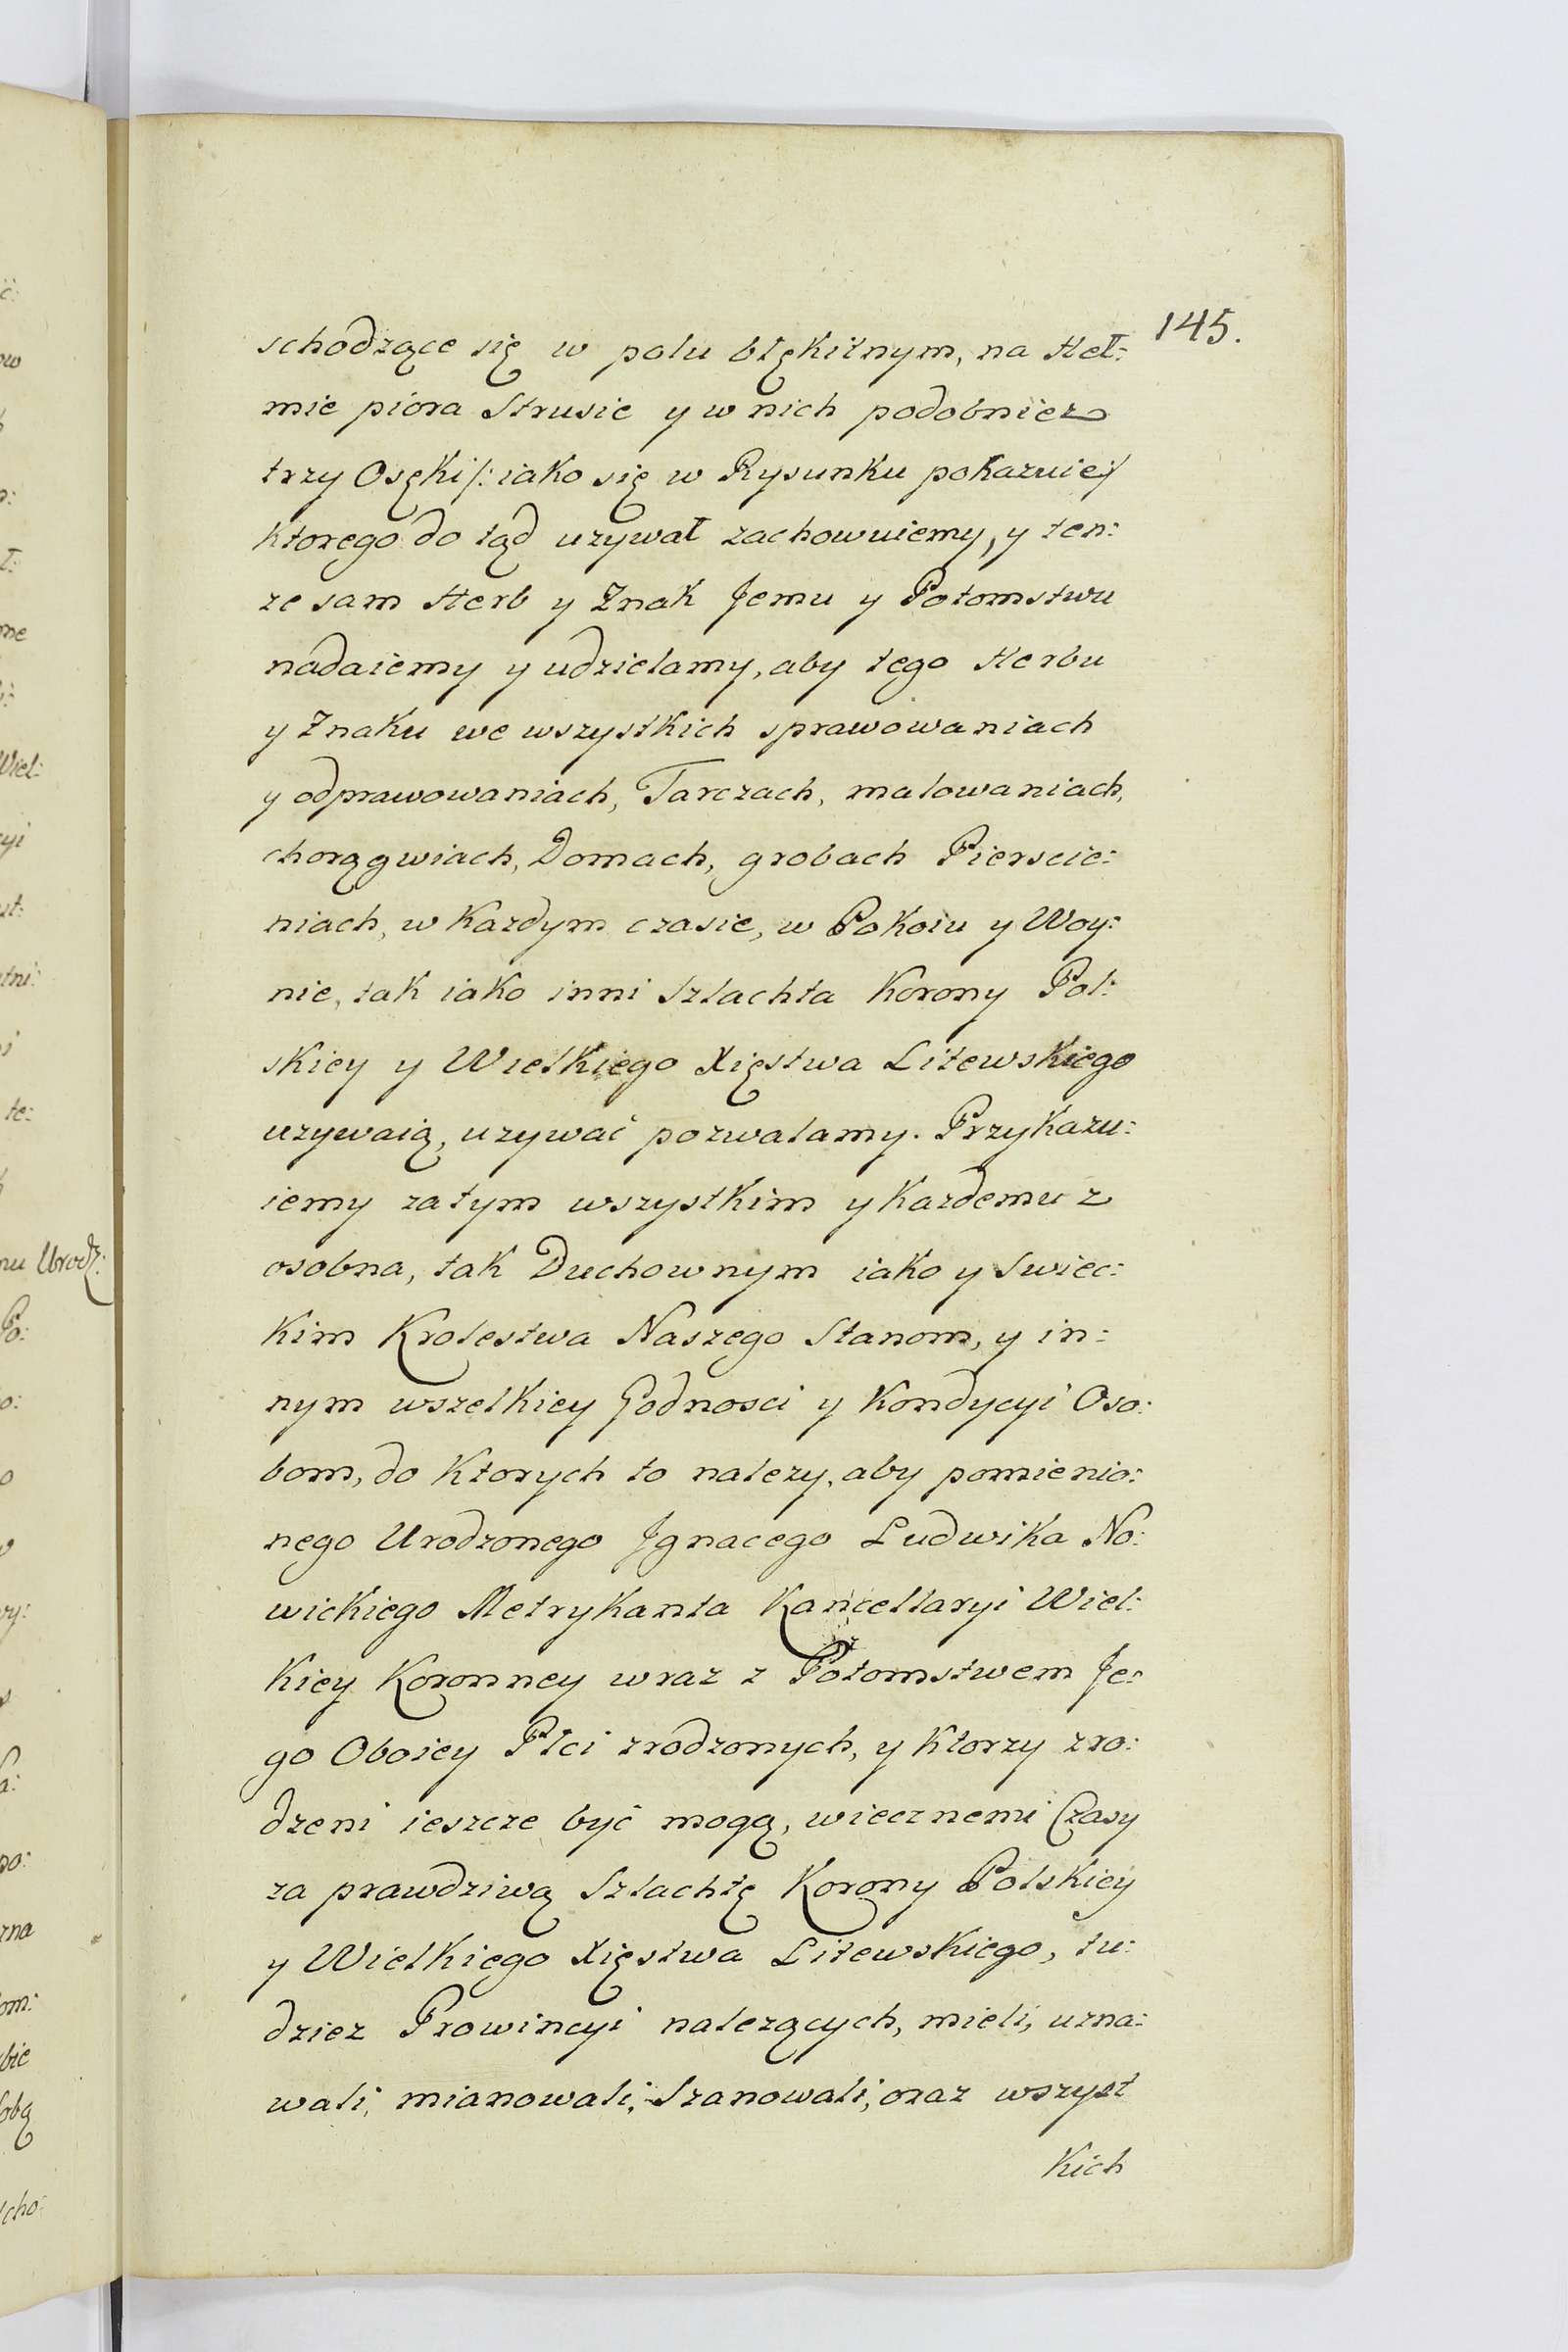 145.
schodzące się w polu błękitnym, na Heł:
mie pióra Strusie y w nich podobniez
trzy Osęki /: iako się w Rysunku pokazuie :/
ktorego do tąd uzywał zachowuiemy, y ten:
ze sam Herb y Znak Jemu y Potomstwu
nadaiemy y udzielamy, aby tego Herbu
y Znaku we wszystkich sprawowaniach
y odprawowaniach, Tarczach, malowaniach,
chorągwiach, Domach, grobach Pierscie:
niach, w Kazdym czasie, w Pokoiu y Woy:
nie, tak iako inni Szlachta Korony Pol:
skiey y Wielkiego Xięstwa Litewskiego
uzywaią, uzywać pozwalamy. Przykazu:
iemy zatym wszystkim y Kazdemu z
osobna, tak Duchownym iako y Swiec:
kim Krolestwa Naszego Stanom, y in:
nym wszelkiey Godnosci y Kondycyi Oso:
bom, do Ktorych to nalezy, aby pomienio:
nego Urodzonego Jgnacego Ludwika No:
wickiego Metrykanta Kancellaryi Wiel:
kiey Koronney wraz z Potomstwem Je:
go Oboiey Płci zrodzonych, y Ktorzy zro:
dzeni ieszcze być mogą, wiecznemi Czasy
za prawdziwą Szlachtę Korony Polskiey
y Wielkiego Xięstwa Litewskiego, tu:
dziez Prowincyi nalezących, mieli, uzna:
wali, mianowali, Szanowali, oraz wszyst
kich
nu Urodz:
Wiel: